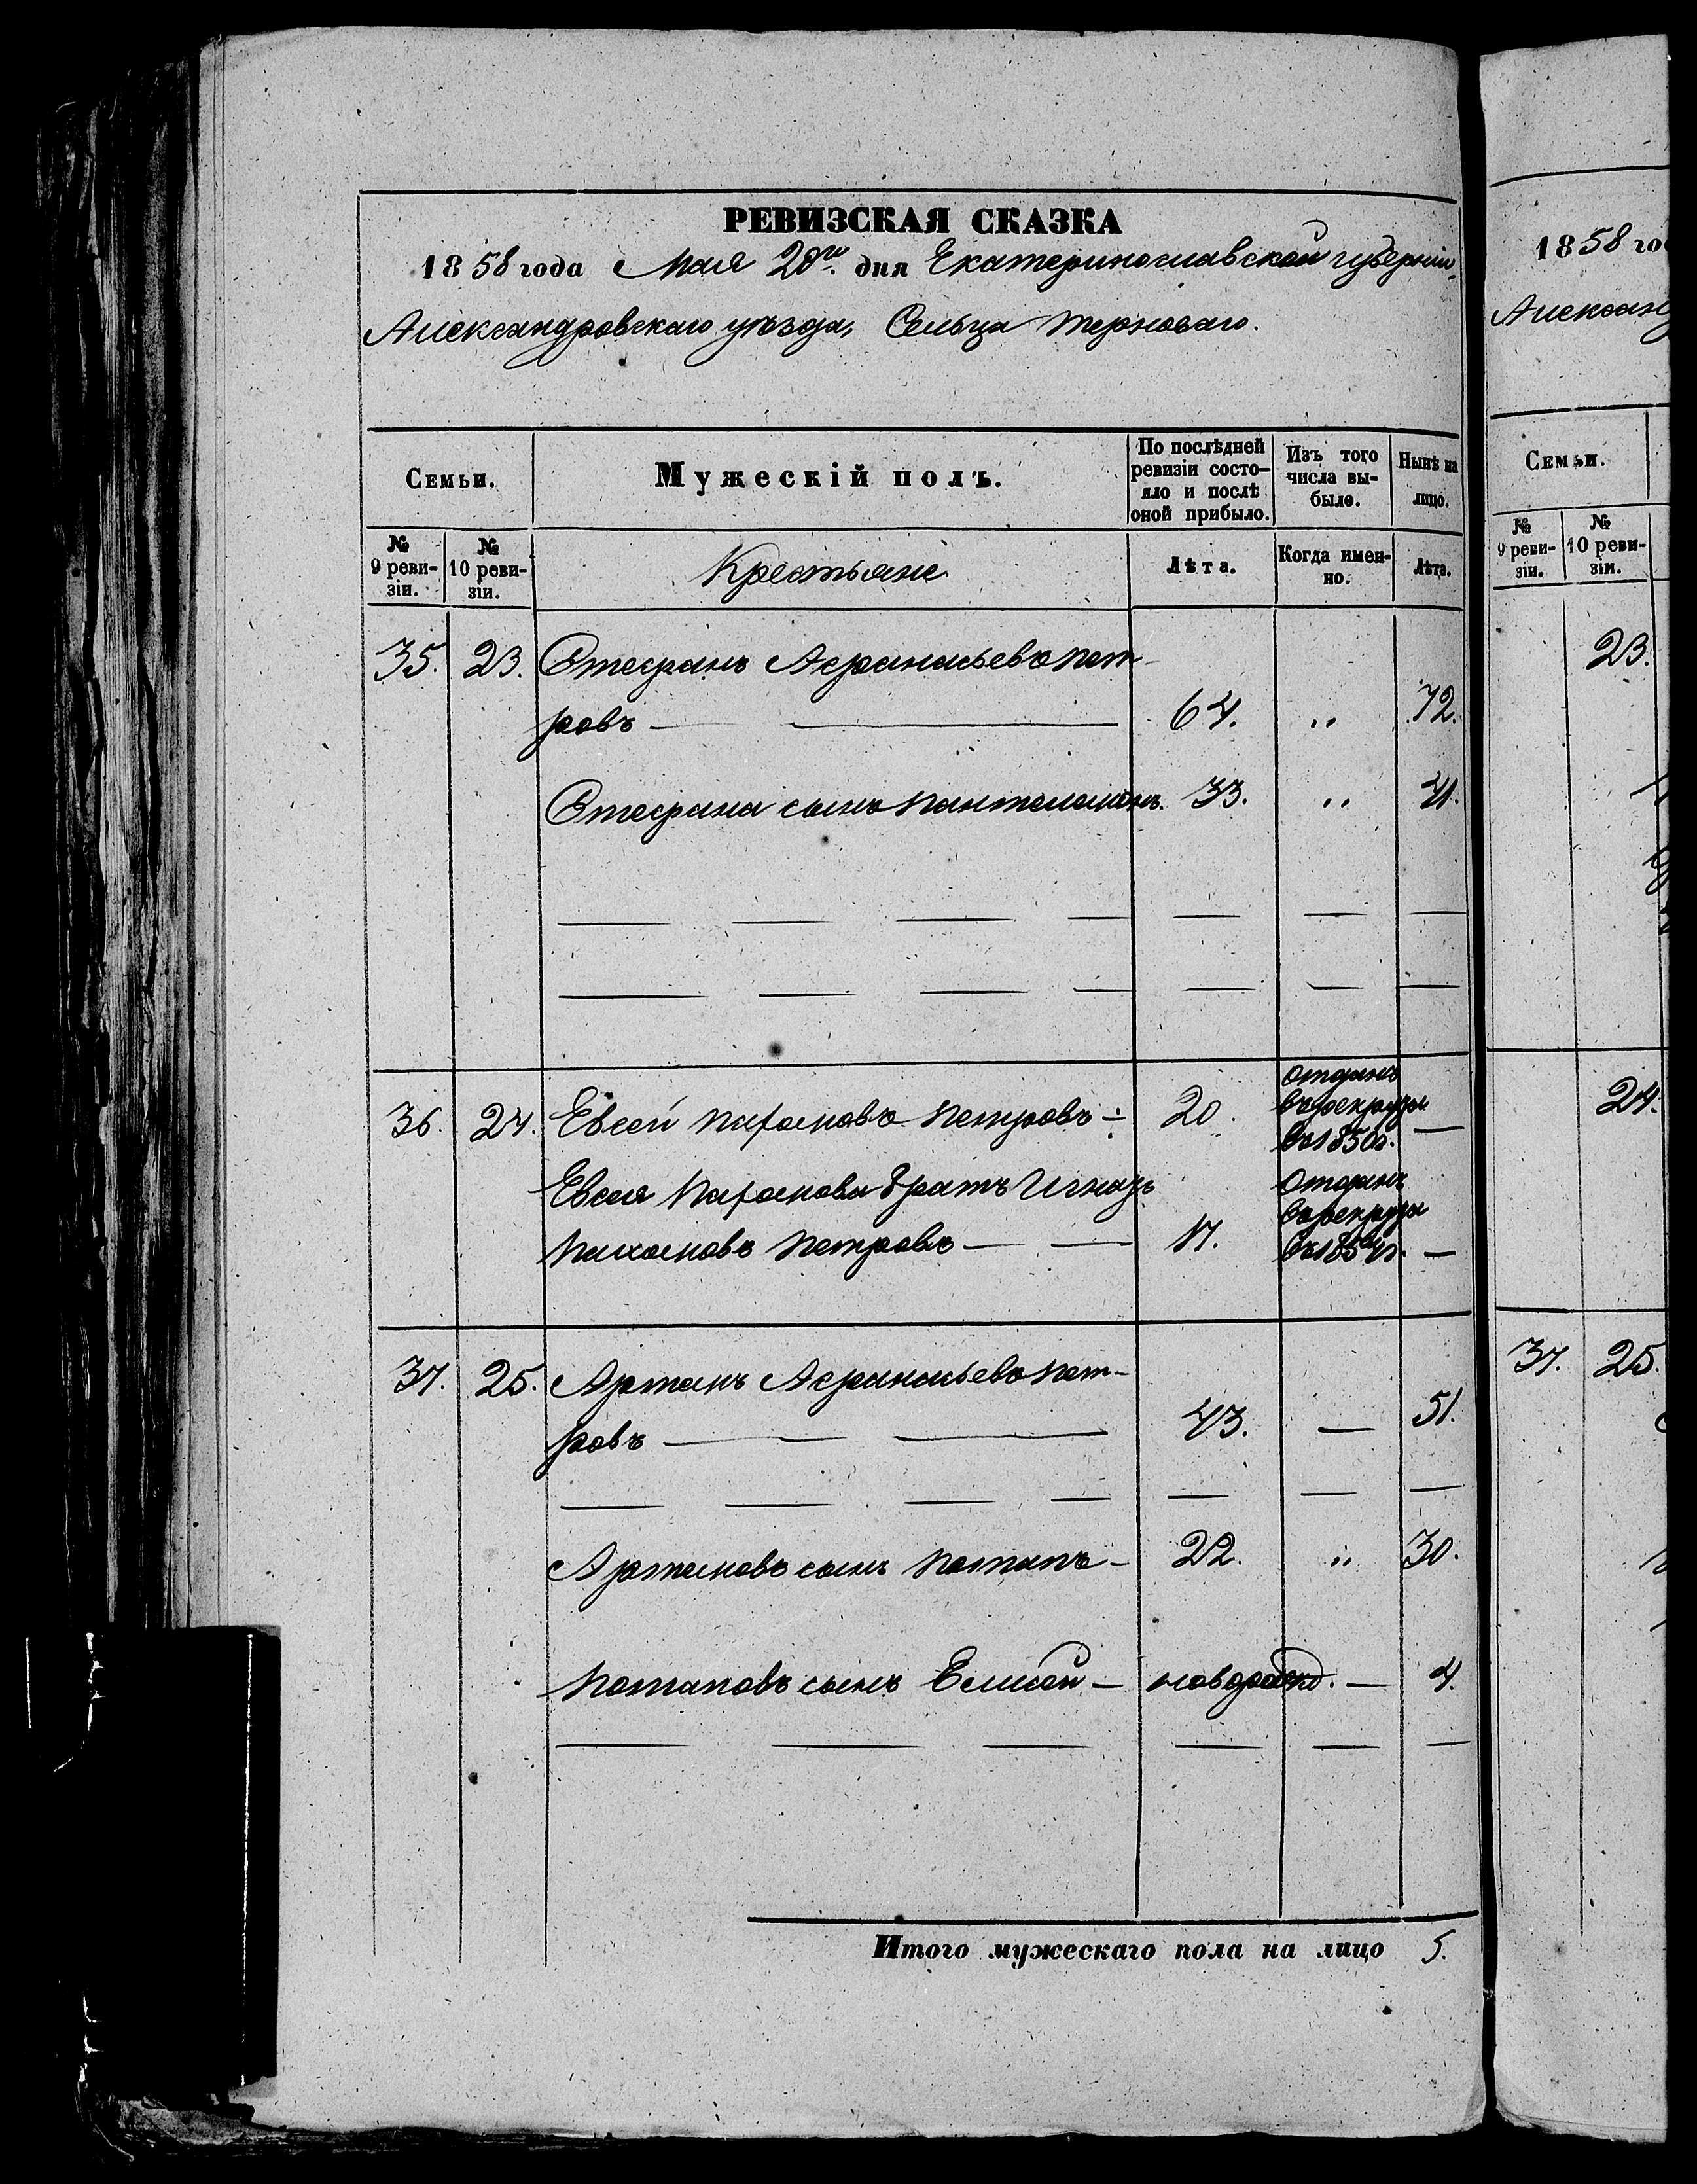 РЕВИЗСКАЯ СКАЗКА
1858 года Мая 20го. дня Екатеринославской губерніи,
Александровскаго уѣзда, Сельца Терноваго.
Семьи.
Мужескій полъ.
По послѣдней ревизіи состо-яло и послѣ оной прибыло.
Изъ того числа вы-было.
Нынѣ на лицо.
№ 9 реви-зіи.
№ 10 реви-зіи.
Крестьяне
Лѣта.
Когда имен-но.
Лѣта.
35. 23. Стефанъ Афанасьевъ Пет-
ровъ — 64. „ 72.
Стефана сынъ Пантелемонъ. 33. „ 41.
36. 24. Евсей Пахомовъ Петровъ — 20. отданъ въ рекруты въ 1850г. —
Евсея Пахомова братъ Игнатъ
Пахомовъ Петровъ — 17. отданъ въ рекруты —
37. 25. Артемъ Афанасьевъ Пет-
ровъ — 43. — 51.
Артемовъ сынъ Потапъ — 22. „ 30.
Потаповъ сынъ — новорожд. — 4.
Итого мужескаго пола на лицо 5.
1858 го
Александ
Семьи.
№ 9 реви-зіи.
№ 10 реви-зіи.
23.
24.
37. 25.